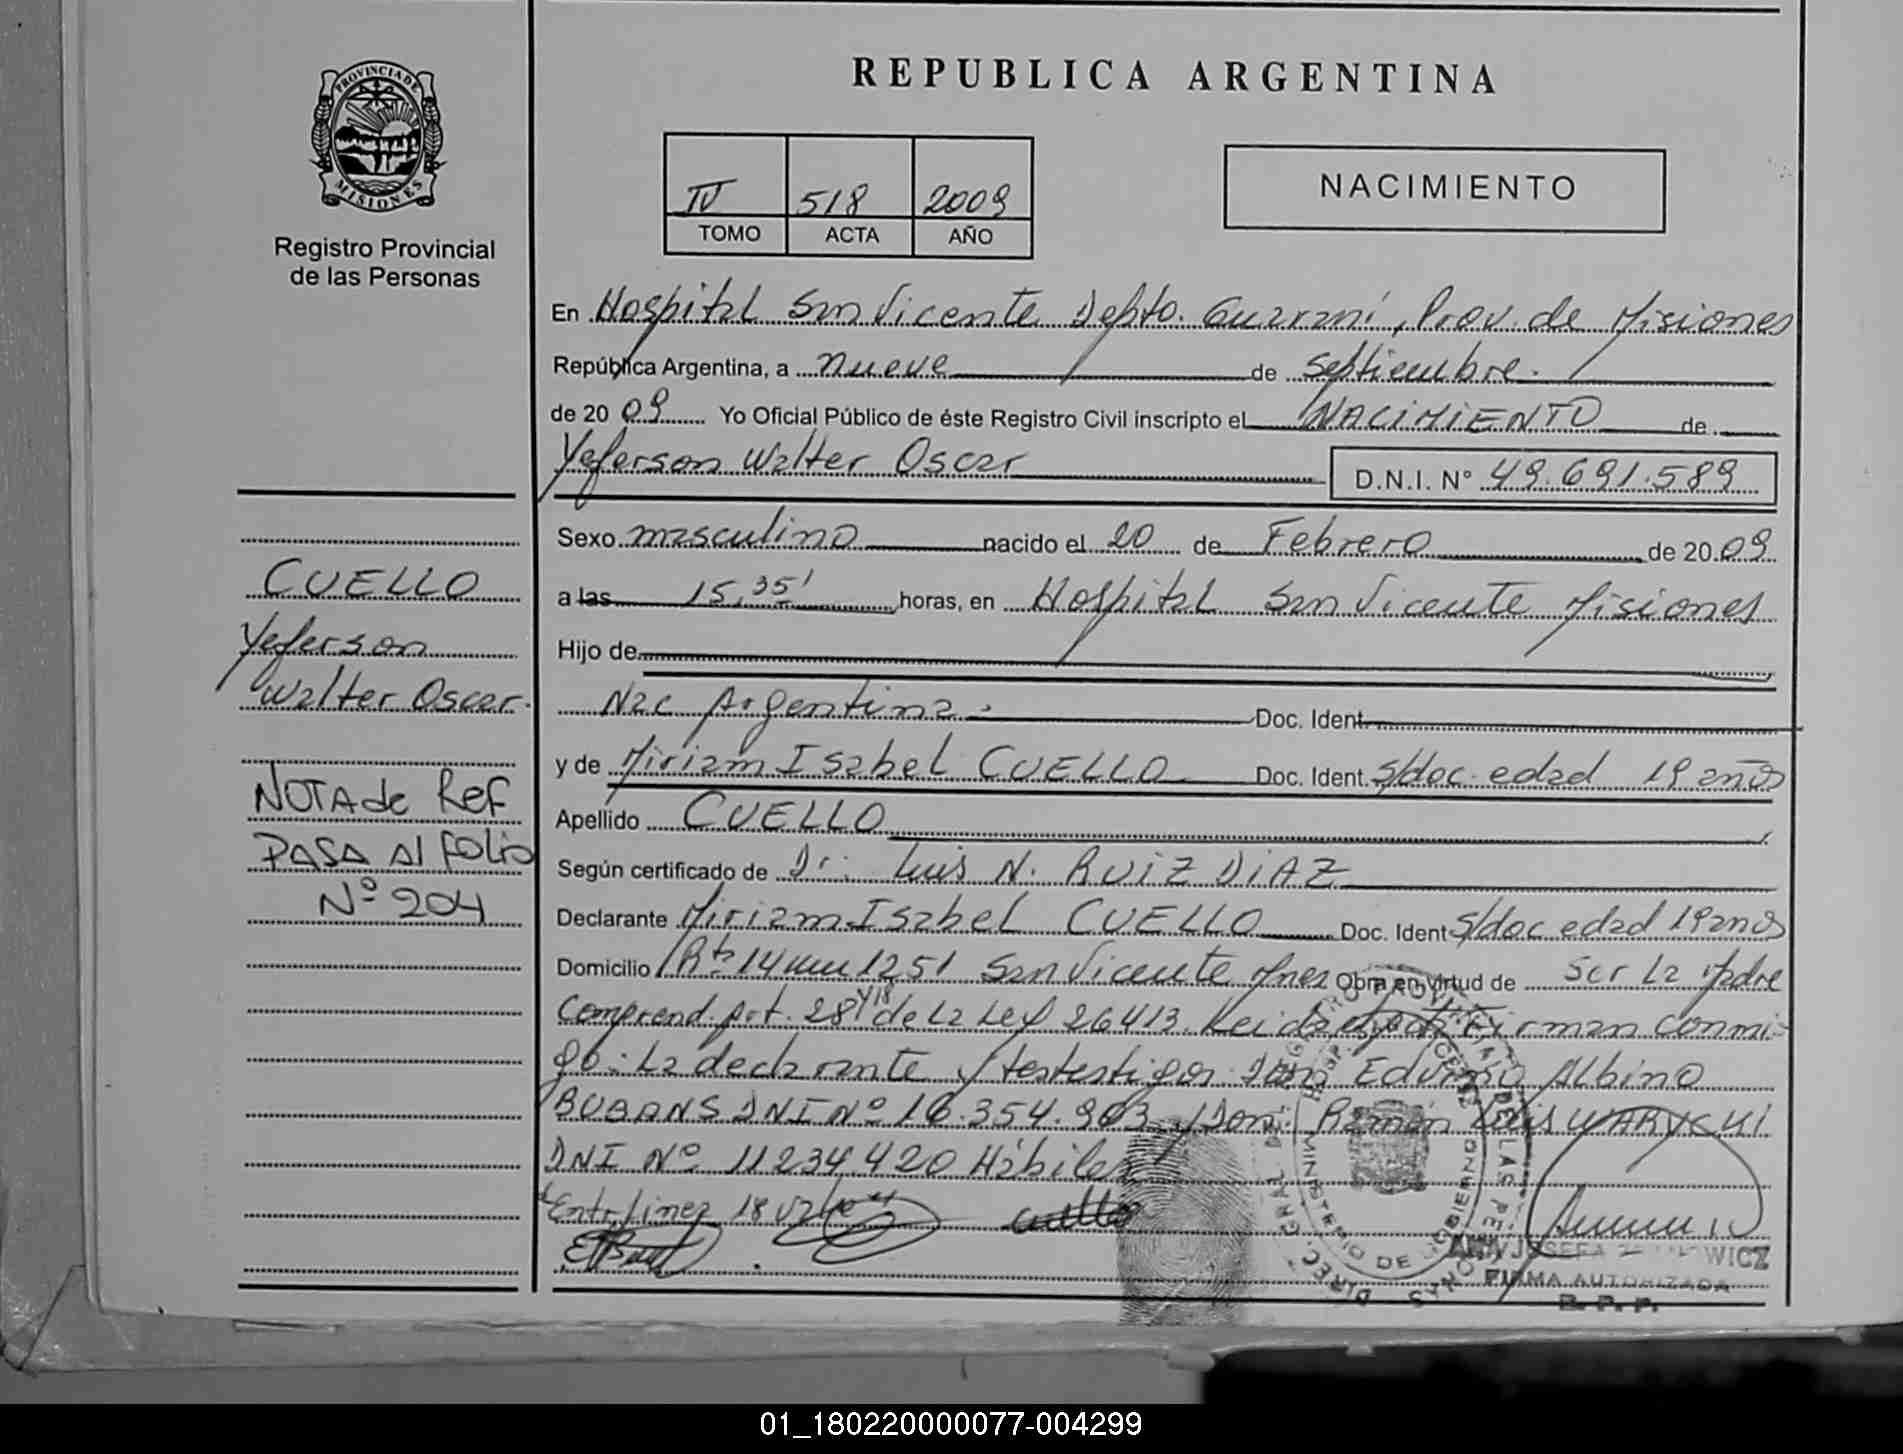 PROVINCIA DE
MISIONES
Registro Provincial
de las Personas
CUELLO
Yeferson
Walter Oscar.
NOTA de Ref
PASA Al folio
Nº 204
REPUBLICA ARGENTINA
IV 518 2009
TOMO ACTA AÑO
NACIMIENTO
En Hospital San Vicente Depto. Guaraní, Prov. de Misiones
República Argentina, a nueve de septiembre.
de 20 09 Yo Oficial Público de éste Registro Civil inscripto el NACIMIENTO de
Yeferson Walter Oscar D.N.I. Nº 49.691.589
Sexo masculino nacido el 20 de Febrero de 20 09
a las 15,35' horas, en Hospital San Vicente Misiones
Hijo de
Nac Argentina. Doc. Ident.
y de Miriam Isabel CUELLO Doc. Ident. s/doc. edad 19 años
Apellido CUELLO
Según certificado de Dr. Luis N. RUIZ DIAZ
Declarante Miriam Isabel CUELLO Doc. Ident s/doc edad 19 anos
Domicilio Rta 14 km 1251 San Vicente Mnes Obra en virtud de ser La Madre
Comprend. Art. 28 y 18 de La Ley 26413. Leida Firman conmi-
go: La declarante y testestigos Edvino Albino
BUBANS DNI Nº 16.354.903 y Don: Ramón Luis
DNI Nº 11234420 Hábiles
Entrelinea 18 vale
Cuello
DIREC. GRAL DE LAS PERSONAS
MINISTERIO DE GOBIERNO
ANA JOSEFA
FIRMA AUTORIZADA
R. P. P.
01_180220000077-004299